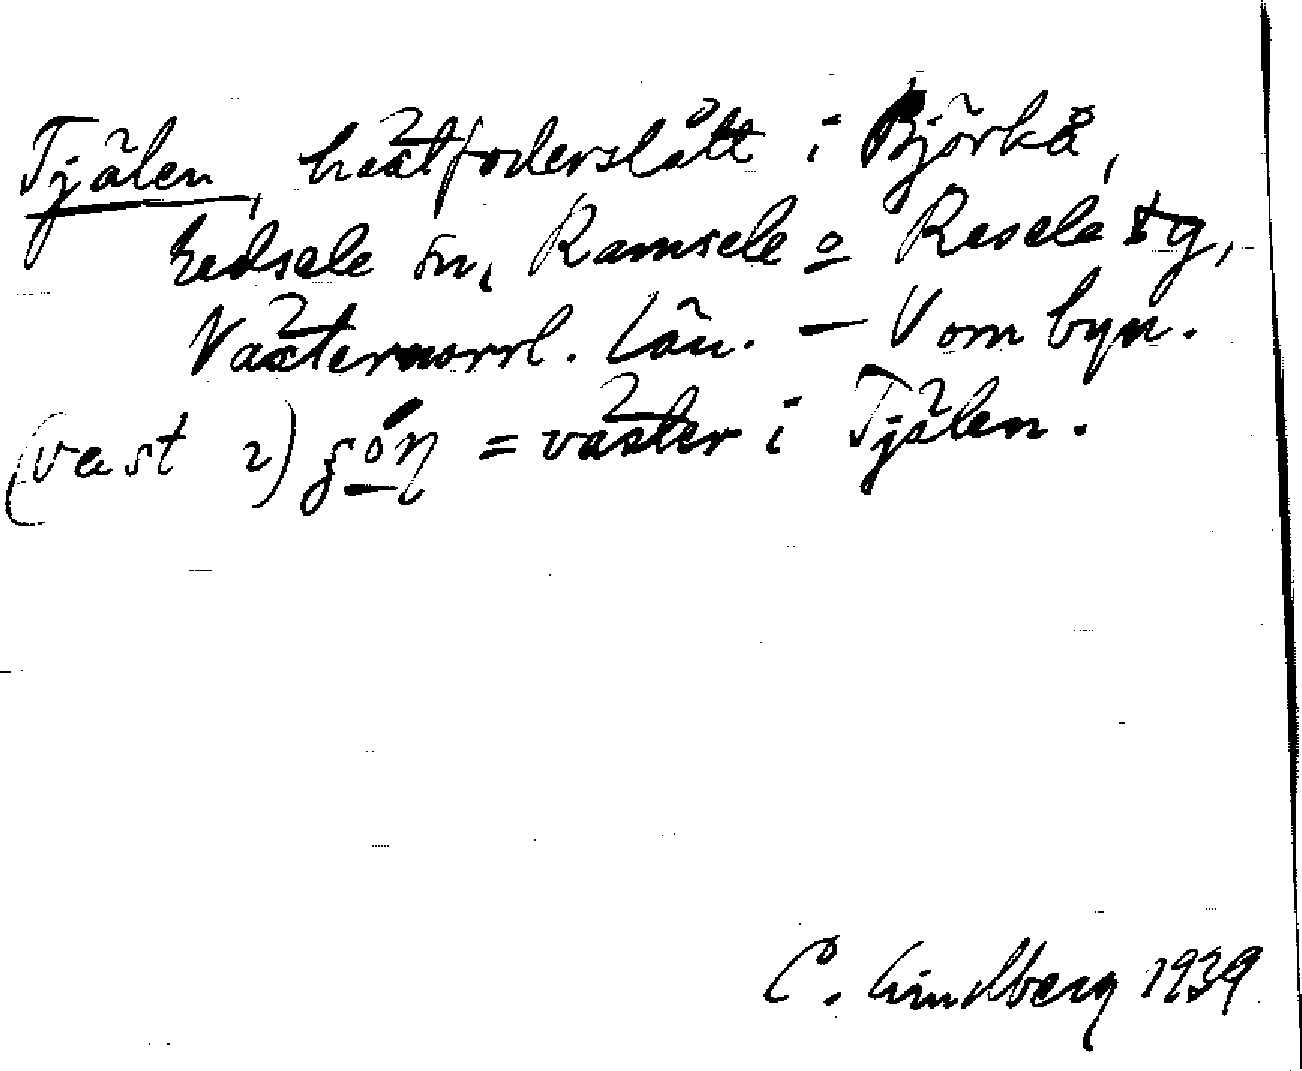 Tjälen, hästfoderslått i Björkå,
Edsele sn, Ramsele o Resele tg,
Västernorrl. län. — V om byn.
(väst i) = väster i Tjälen.
C. Lindberg 1939